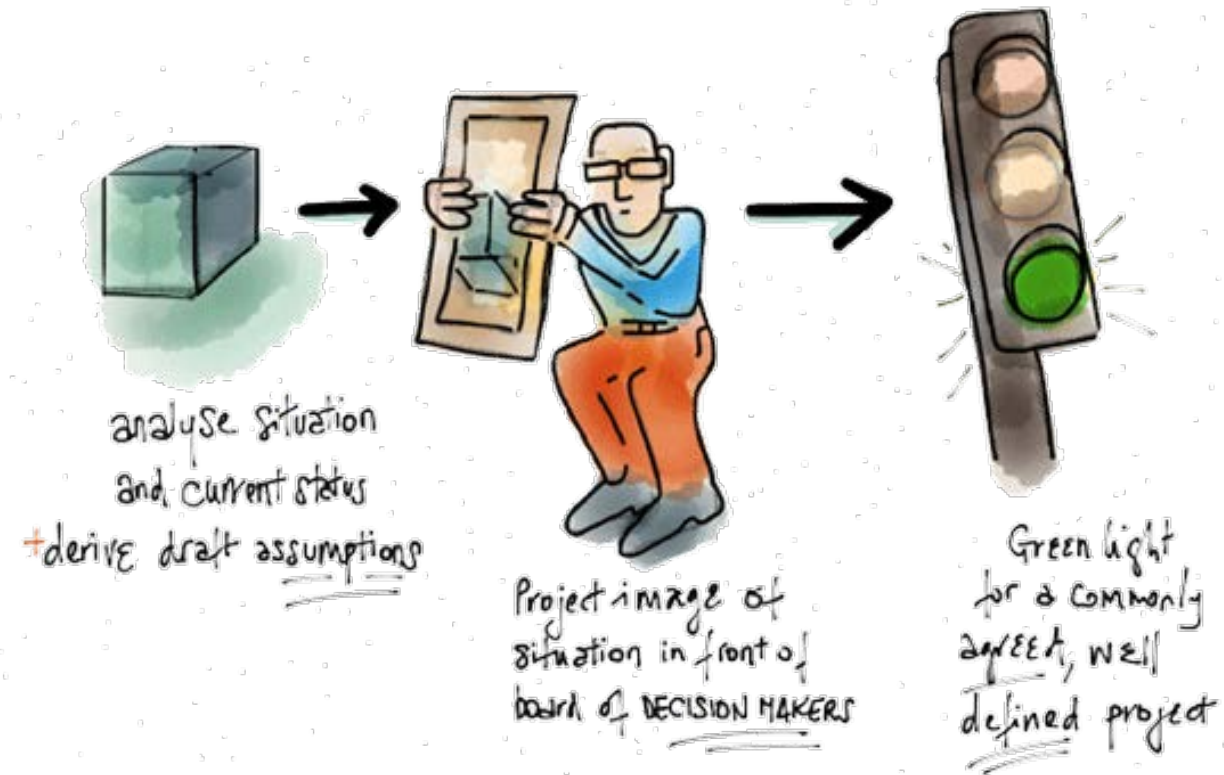 analyse situation
and current status
+derive draft assumptions
Project image of
situation in front of
board of DECISION MAKERS
Green light
for a commonly
agreed, well
defined project